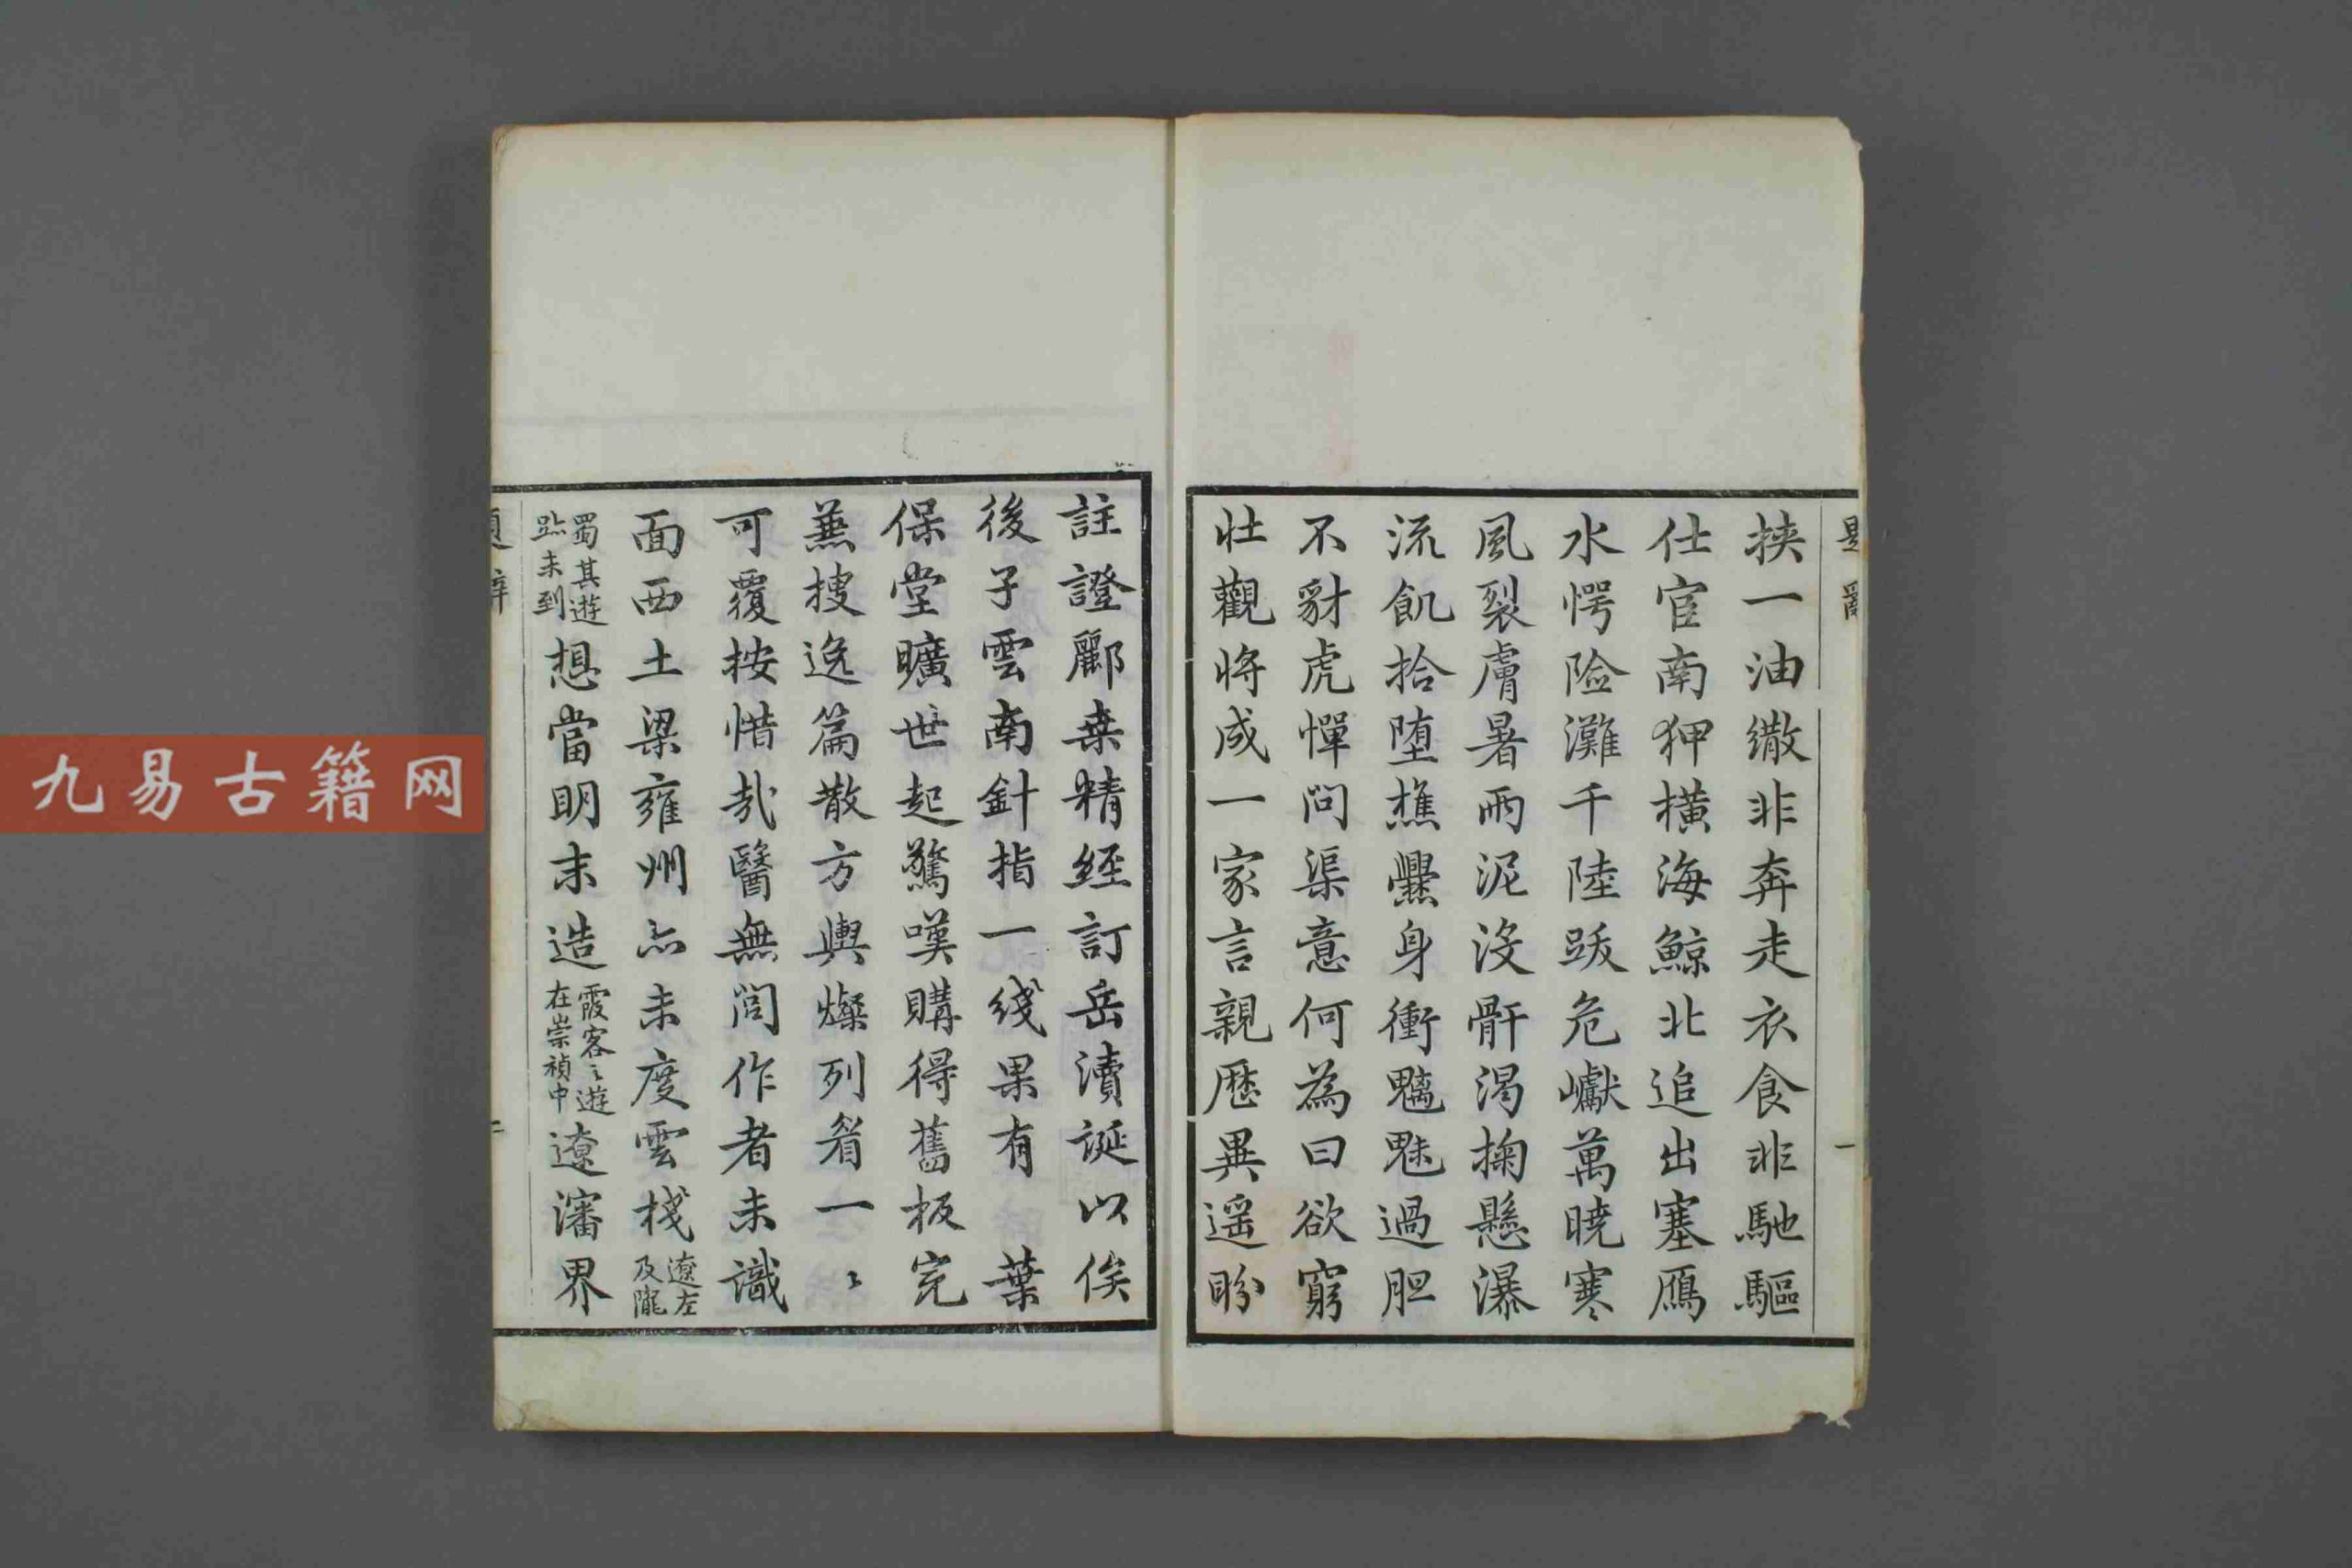 挾一油繖非奔走衣食非馳驅
仕宦南狎橫海鯨北追出塞鴈
水愕险灘千陸跋危巘萬暁寒
風裂膚暑雨泥沒骭渴掬懸瀑
流飢拾堕樵爨身衝魑魅過胆
不豺虎憚问渠意何為曰欲窮
壮觀将成一家言親歷異遥盼
註證酈桒精经訂岳瀆诞以俟
後子雲南針指一綫果有葉
保堂曠世起驚嘆購得舊板完
蕪搜逸篇散方輿燦列眉一〻
可覆按惜哉醫無閭作者未識
面西土梁雍州亦未度雲栈
遼左
及隴
蜀其遊
趾未到
想當明末造
霞客〻遊
在崇禎中
遼瀋界
九易古籍网